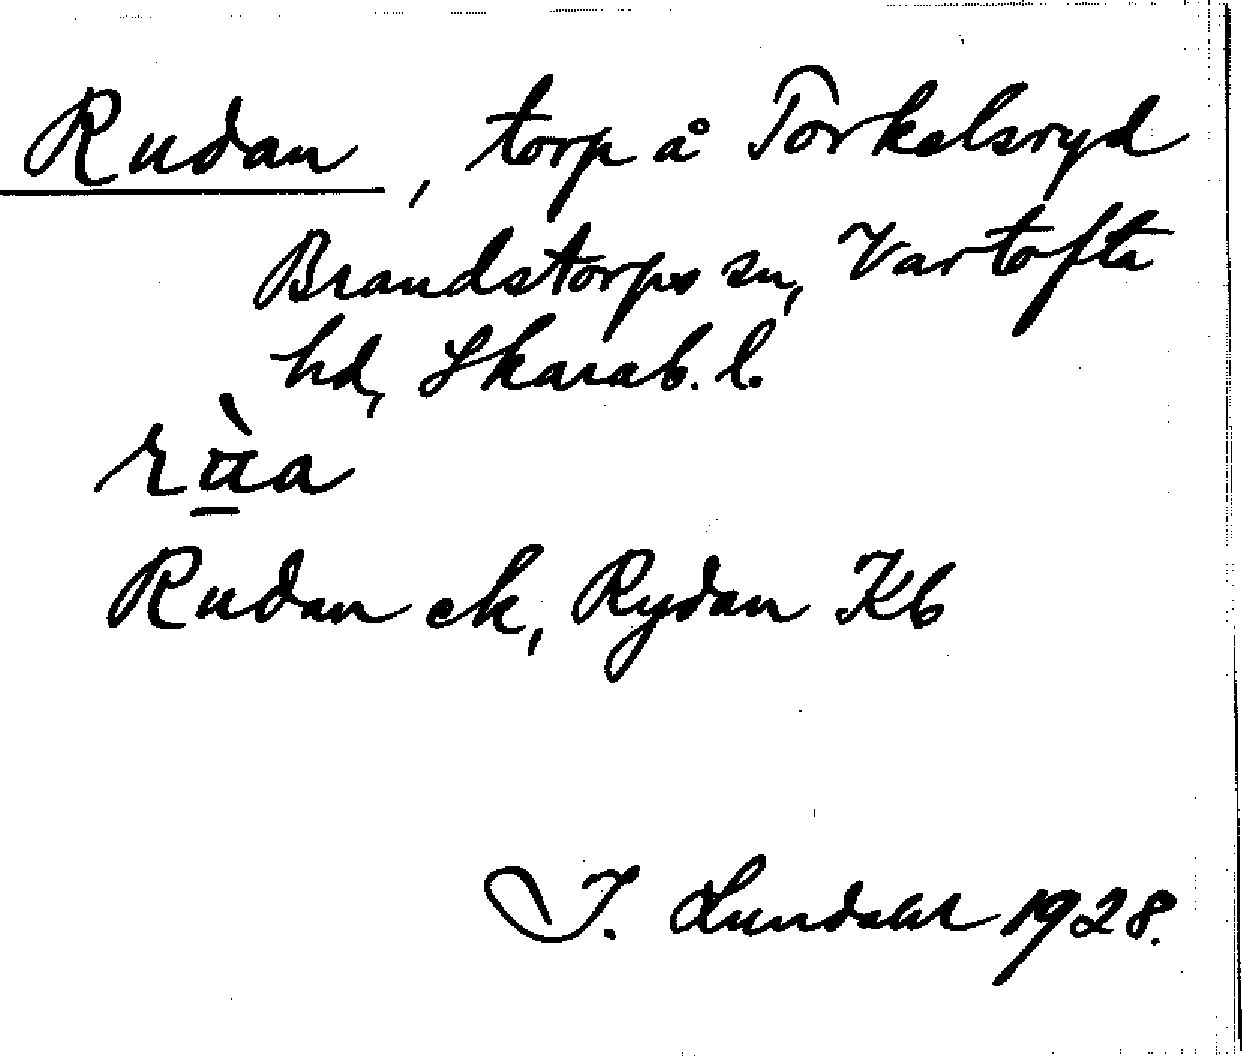 Rudan, torp å Torkelsryd
Brandstorps sn, Vartofta
hd, Skarab. l.
rùa
Rudan ek, Rydan Kb
J. Lundahl 1928.